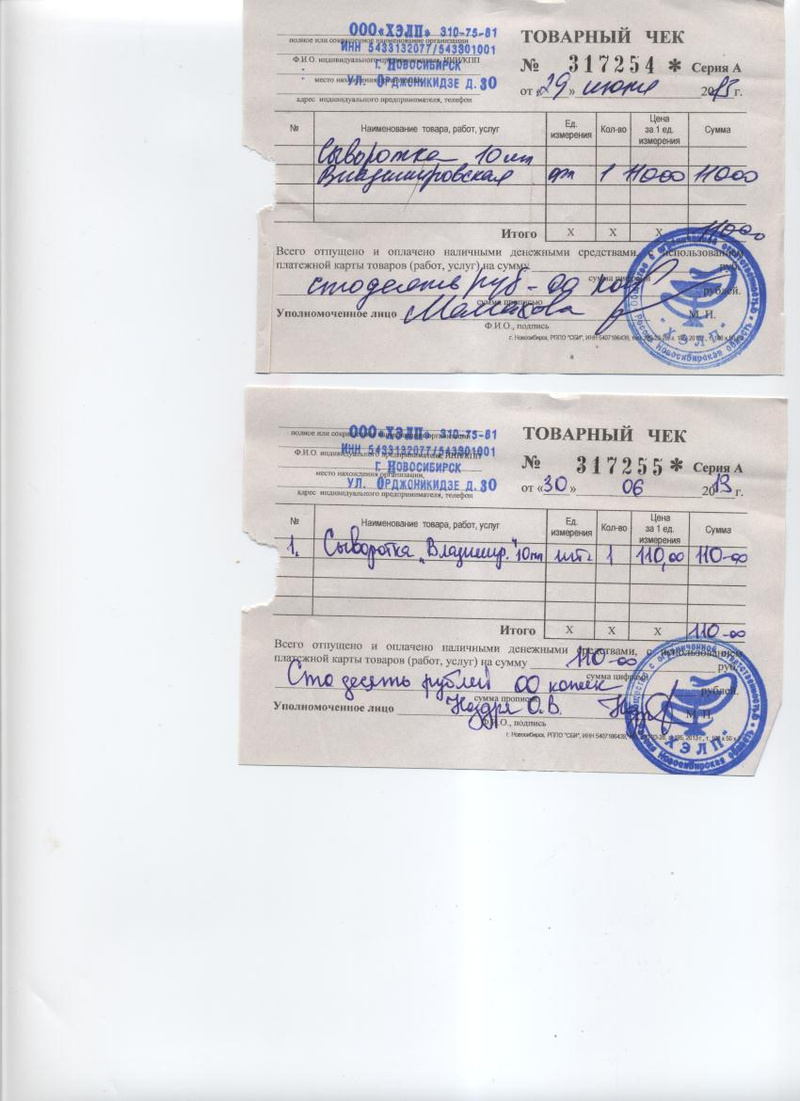 ООО «ХЭЛП» 310-75-81
полное или сокращенное наименование организации
ИНН 5433132077/543301001
Ф.И.О. индивидуального предпринимателя, ИНН/КПП
г. Новосибирск
место нахождения
ул. Орджоникидзе д. 30
адрес индивидуального предпринимателя, телефон
ТОВАРНЫЙ ЧЕК
№ 317254 * Серия А
от «29» июня 2013 г.
№ Наименование товара, работ, услуг Ед. измерения Кол-во Цена за 1 ед. измерения Сумма
Сыворотка 10шт
Владимировская 1 110 00 110 00
Итого Х Х Х 110 00
Всего отпущено и оплачено наличными денежными средствами, с использованием
платежной карты товаров (работ, услуг) на сумму руб.
сумма цифрами
сто десять руб - 00 коп рублей.
сумма прописью
Уполномоченное лицо М. П.
Ф.И.О., подпись
г. Новосибирск, РППО "СБИ", ИНН 5407186439,
"ХЭЛП"
ООО «ХЭЛП» 310-75-81
полное или
ИНН 5433132077/543301001
Ф.И.О. индивидуального предпринимателя, ИНН/КПП
г. Новосибирск
место нахождения организации,
ул. Орджоникидзе д. 30
адрес индивидуального предпринимателя, телефон
ТОВАРНЫЙ ЧЕК
№ 317255 * Серия А
от «30» 06 2013 г.
№ Наименование товара, работ, услуг Ед. измерения Кол-во Цена за 1 ед. измерения Сумма
1. Сыворотка „Владимир." 10шт шт. 1 110,00 110-00
Итого Х Х Х 110-00
Всего отпущено и оплачено наличными денежными средствами, с использованием
платежной карты товаров (работ, услуг) на сумму 110-00 руб.
сумма цифрами
Сто десять рублей 00 копеек рублей.
сумма прописью
Уполномоченное лицо Ноздря О.В. М. П.
Ф.И.О., подпись
г. Новосибирск, РППО "СБИ", ИНН 5407186439,
"ХЭЛП"